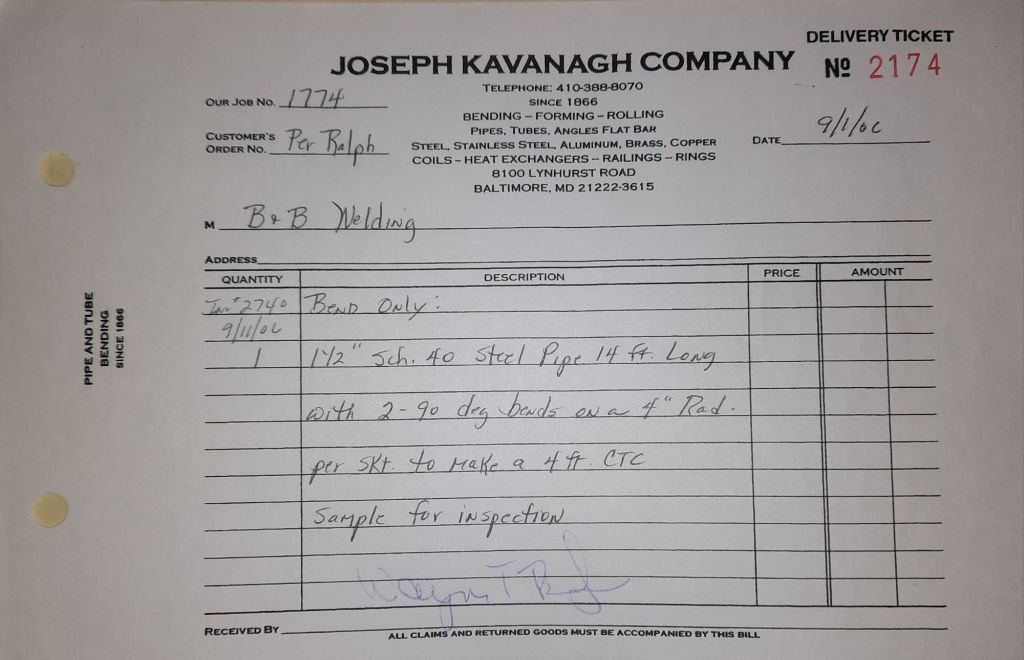 DELIVERY TICKET
JOSEPH KAVANAGH COMPANY
Nº 2174
TELEPHONE: 410-388-8070
SINCE 1866
BENDING – FORMING – ROLLING
PIPES, TUBES, ANGLES FLAT BAR
STEEL, STAINLESS STEEL, ALUMINUM, BRASS, COPPER
COILS – HEAT EXCHANGERS – RAILINGS – RINGS
8100 LYNHURST ROAD
BALTIMORE, MD 21222-3615
OUR JOB NO. 1774
CUSTOMER'S
ORDER NO. Per Ralph
DATE 9/1/06
M B & B Welding
ADDRESS
QUANTITY DESCRIPTION PRICE AMOUNT
Inv# 2740 Bend Only:
9/11/06
1 1 1/2" Sch. 40 Steel Pipe 14 ft. Long
with 2-90 deg bends on a 4" Rad.
per Skt. to make a 4 ft. CTC
Sample for inspection
Wayne T
RECEIVED BY
ALL CLAIMS AND RETURNED GOODS MUST BE ACCOMPANIED BY THIS BILL
PIPE AND TUBE
BENDING
SINCE 1866